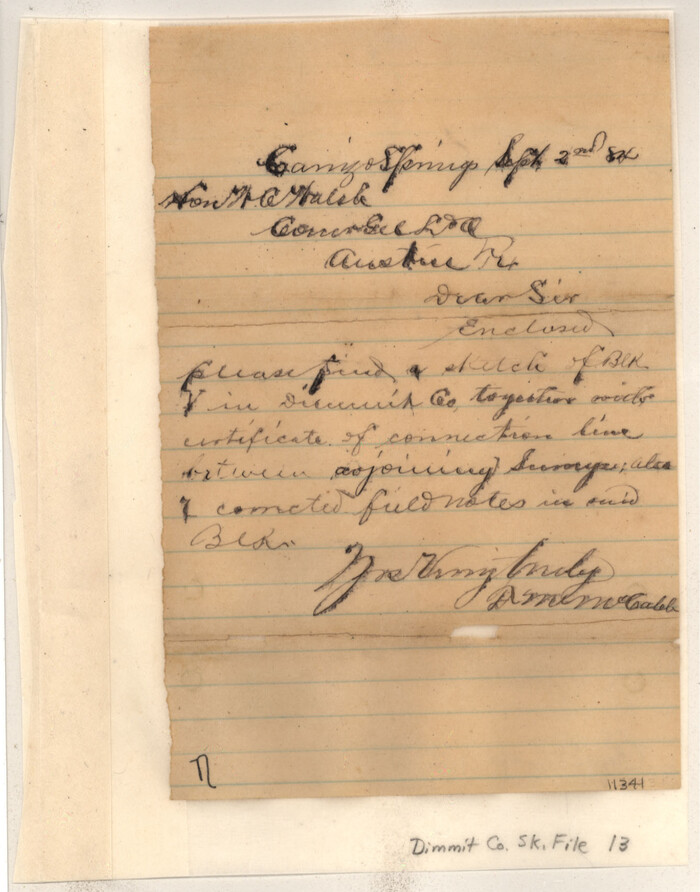 Carrizo Springs Sept. 2nd 84
Hon W. C. Walsh
Comr Gel L. O.
Austin Tex
Dear Sir
Enclosed
please find a sketch of Blk
in Dimmit Co, together with
certificate of connection line
between adjoining Surveys; also
7 corrected field notes in said
Blk.
Yrs Very truly
D. M. McCaleb
11341
Dimmit Co. Sk. File 13